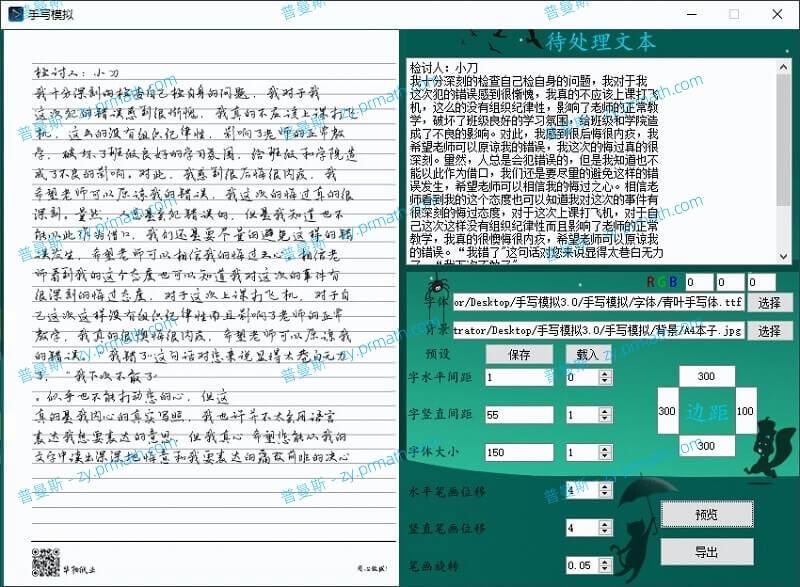 手写模拟
检讨人：小刀
我十分深刻的检查自己检自身的问题，我对于我
这次犯的错误感到很惭愧，我真的不应该上课打飞
机，这么的没有组织纪律性，影响了老师的正常教
学，破坏了班级良好的学习氛围，给班级和学院造
成了不良的影响。对此，我感到很后悔很内疚，我
希望老师可以原谅我的错误，我这次的悔过真的很
深刻。量然，人总是会犯错误的，但是我知道也不
能以此作为借口，我们还是要尽量的避免这样的错
误发生，希望老师可以相信我的悔过之心。相信老
师看到我的这个态度也可以知道我对这次的事件有
很深刻的悔过态度，对于这次上课打飞机，对于自
己这次这样没有组织纪律性而且影响了老师的正常
教学，我真的很懊悔很内疚，希望老师可以原谅我
的错误。“我错了”这句话对您来说显得太苍白无力
了，“我下次不敢了”
，似乎也不能打动您的心，但这
真的是我内心的真实写照，我也许并不太会用语言
表达我想要表达的意思，但我真心希望您能从我的
文字中读出深深地悔意和我要表达的痛改前非的决心
华阳纸业
待处理文本
检讨人：小刀
我十分深刻的检查自己检自身的问题，我对于我
这次犯的错误感到很惭愧，我真的不应该上课打飞
机，这么的没有组织纪律性，影响了老师的正常教
学，破坏了班级良好的学习氛围，给班级和学院造
成了不良的影响。对此，我感到很后悔很内疚，我
希望老师可以原谅我的错误，我这次的悔过真的很
深刻。量然，人总是会犯错误的，但是我知道也不
能以此作为借口，我们还是要尽量的避免这样的错
误发生，希望老师可以相信我的悔过之心。相信老
师看到我的这个态度也可以知道我对这次的事件有
很深刻的悔过态度，对于这次上课打飞机，对于自
己这次这样没有组织纪律性而且影响了老师的正常
教学，我真的很懊悔很内疚，希望老师可以原谅我
的错误。“我错了”这句话对您来说显得太苍白无力
了，“我下次不敢了”
RGB 0 0 0
字体 or/Desktop/手写模拟3.0/手写模拟/字体/青叶手写体.ttf 选择
背景 trator/Desktop/手写模拟3.0/手写模拟/背景/A4本子.jpg 选择
预设 保存 载入
字水平间距 1 0
字竖直间距 55 1
字体大小 150 1
300
300 边距 100
300
水平笔画位移 4
竖直笔画位移 4
笔画旋转 0.05
预览
导出
普曼斯 - zy.prmath.com